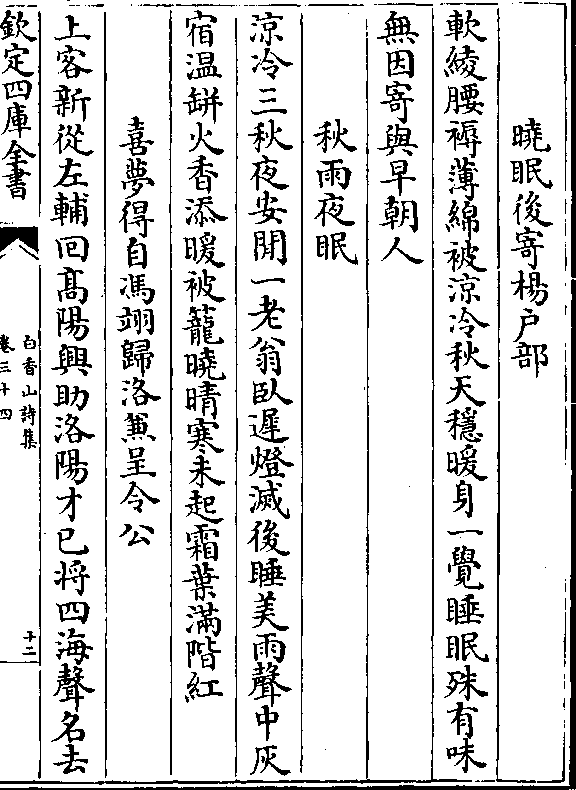 曉眠後寄楊戸部
軟綾腰褥薄綿被涼冷秋天穩暖身一覺睡眠殊有味
無因寄與早朝人
秋雨夜眠
涼冷三秋夜安閒一老翁臥遲燈滅後睡美雨聲中灰
宿温缾火香添暖被籠曉晴寒未起霜葉滿階紅
喜夢得自馮翊歸洛兼呈令公
上客新從左輔回髙陽興助洛陽才已將四海聲名去
欽定四庫全書
白香山詩集
卷三十四
十二